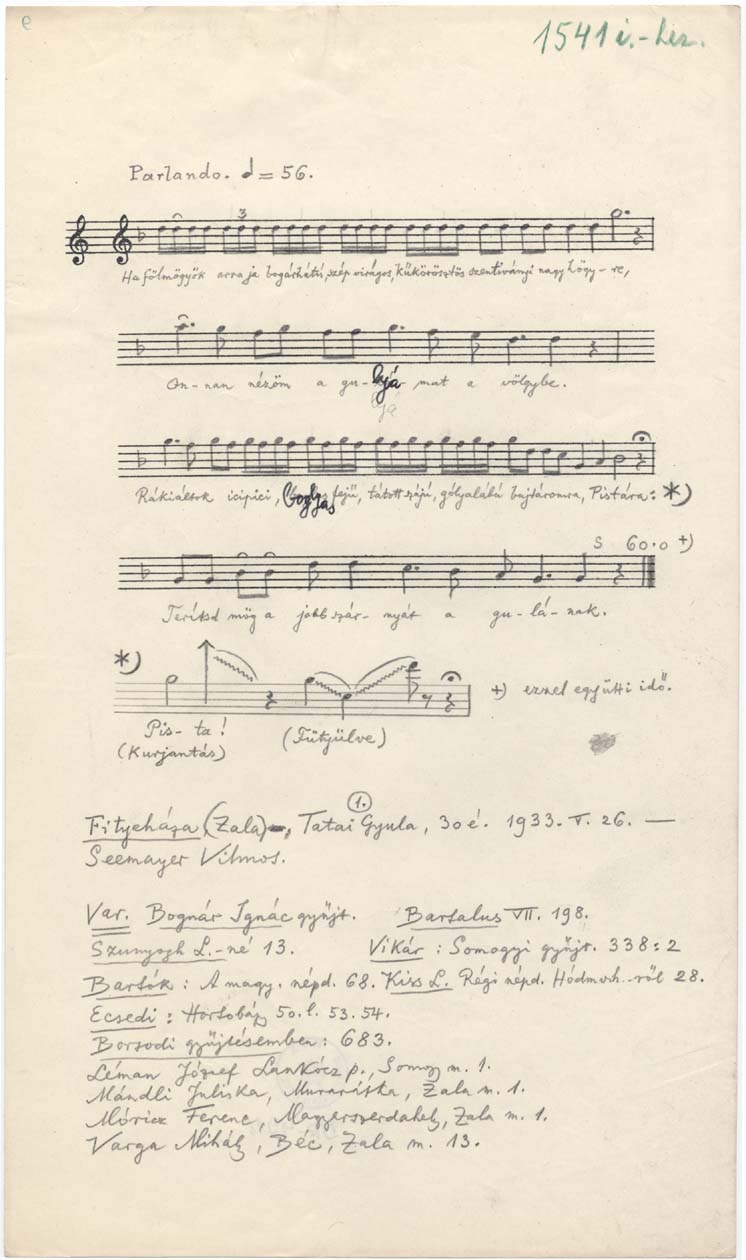 1541 i.-hez.
Parlando. 𝅗𝅥 = 56.
3
Ha fölmögyök arra ja bogárhátú, szép virágos, kükörösztös szentiványi nagy högy-re,
On-nan nézöm a gu-lyá-mat a völgybe.
lyá
Rákiáltok icipici, boglyas fejű, tátott szájú, gólyalábú bujtáromra, Pistára: *)
S 60.0 +)
Terítsd mög a jobb szár-nyát a gu-lá-nak.
*)
+) ezzel együtti idő.
Pis-ta!
(Kurjantás) (Fütyülve)
1.
Fityeháza (Zala), Tatai Gyula, 30 é. 1933. V. 26. —
Seemayer Vilmos.
Var. Bognár Ignác gyűjt. Bartalus VII. 198.
Szunyogh L.-né 13. Vikár: Somogyi gyűjt. 338:2
Bartók: A magy. népd. 68. Kiss L. Régi népd. Hódmvh.-ről 28.
Ecsedi: Hortobágy 50. l. 53. 54.
Borsodi gyűjtésemben: 683.
Léman József Lankócz p., Somogy m. 1.
Mándli Juliska, Murarátka, Zala m. 1.
Móricz Ferenc, Magyarszerdahely, Zala m. 1.
Varga Mihály, Béc, Zala m. 13.